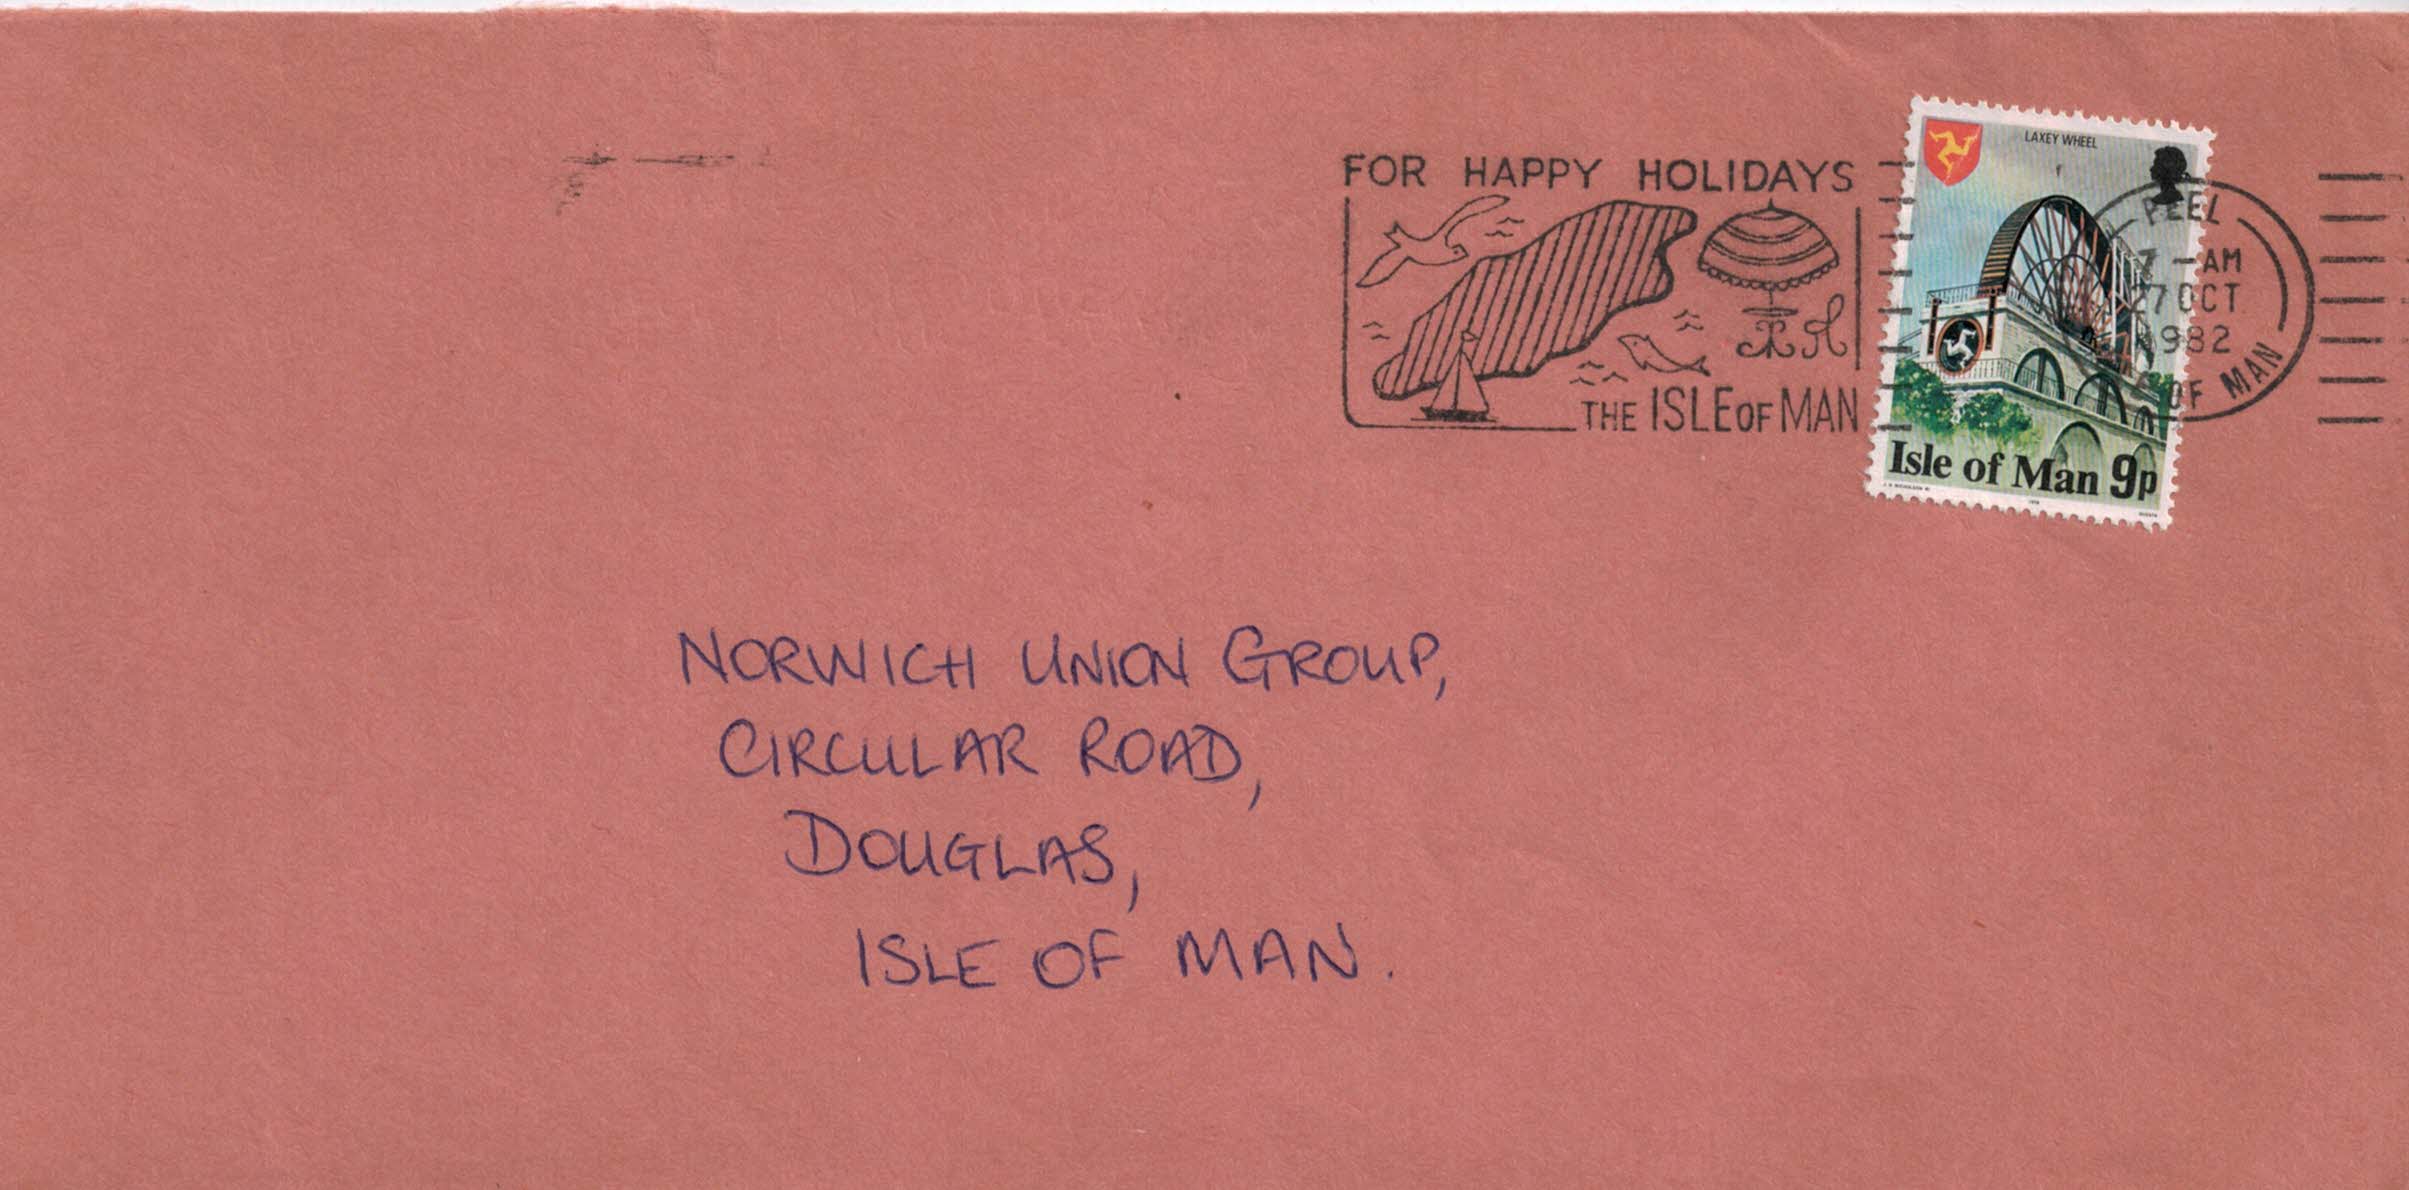 FOR HAPPY HOLIDAYS
THE ISLE OF MAN
LAXEY WHEEL
PEEL
7 - AM
27 OCT
1982
OF MAN
Isle of Man 9p
1978
NORWICH UNION GROUP,
CIRCULAR ROAD,
DOUGLAS,
ISLE OF MAN.